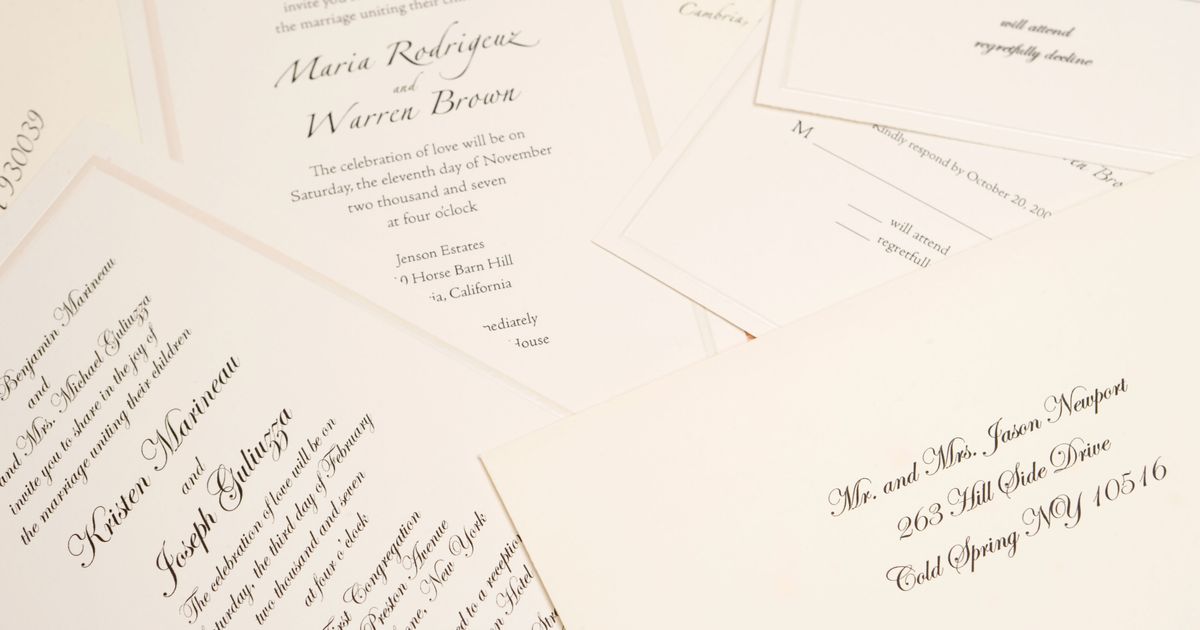 invite you
the marriage uniting their
Maria Rodrigeuz
and
Warren Brown
The celebration of love will be on
Saturday, the eleventh day of November
two thousand and seven
at four o'clock
Jenson Estates
Horse Barn Hill
California
House
Cambria,
will attend
regretfully decline
M
Kindly respond by October 20,
will attend
930039
Benjamin Marineau
and
and Mrs. Michael Guliuzza
invite you to share in the joy of
the marriage uniting their children
Kristen Marineau
and
Joseph Guliuzza
The celebration of love will be on
the third day of February
two thousand and seven
at four o'clock
Congregation
Preston Avenue
New York
to a reception
Hotel
Mr. and Mrs. Jason Newport
263 Hill Side Drive
Cold Spring NY 10516